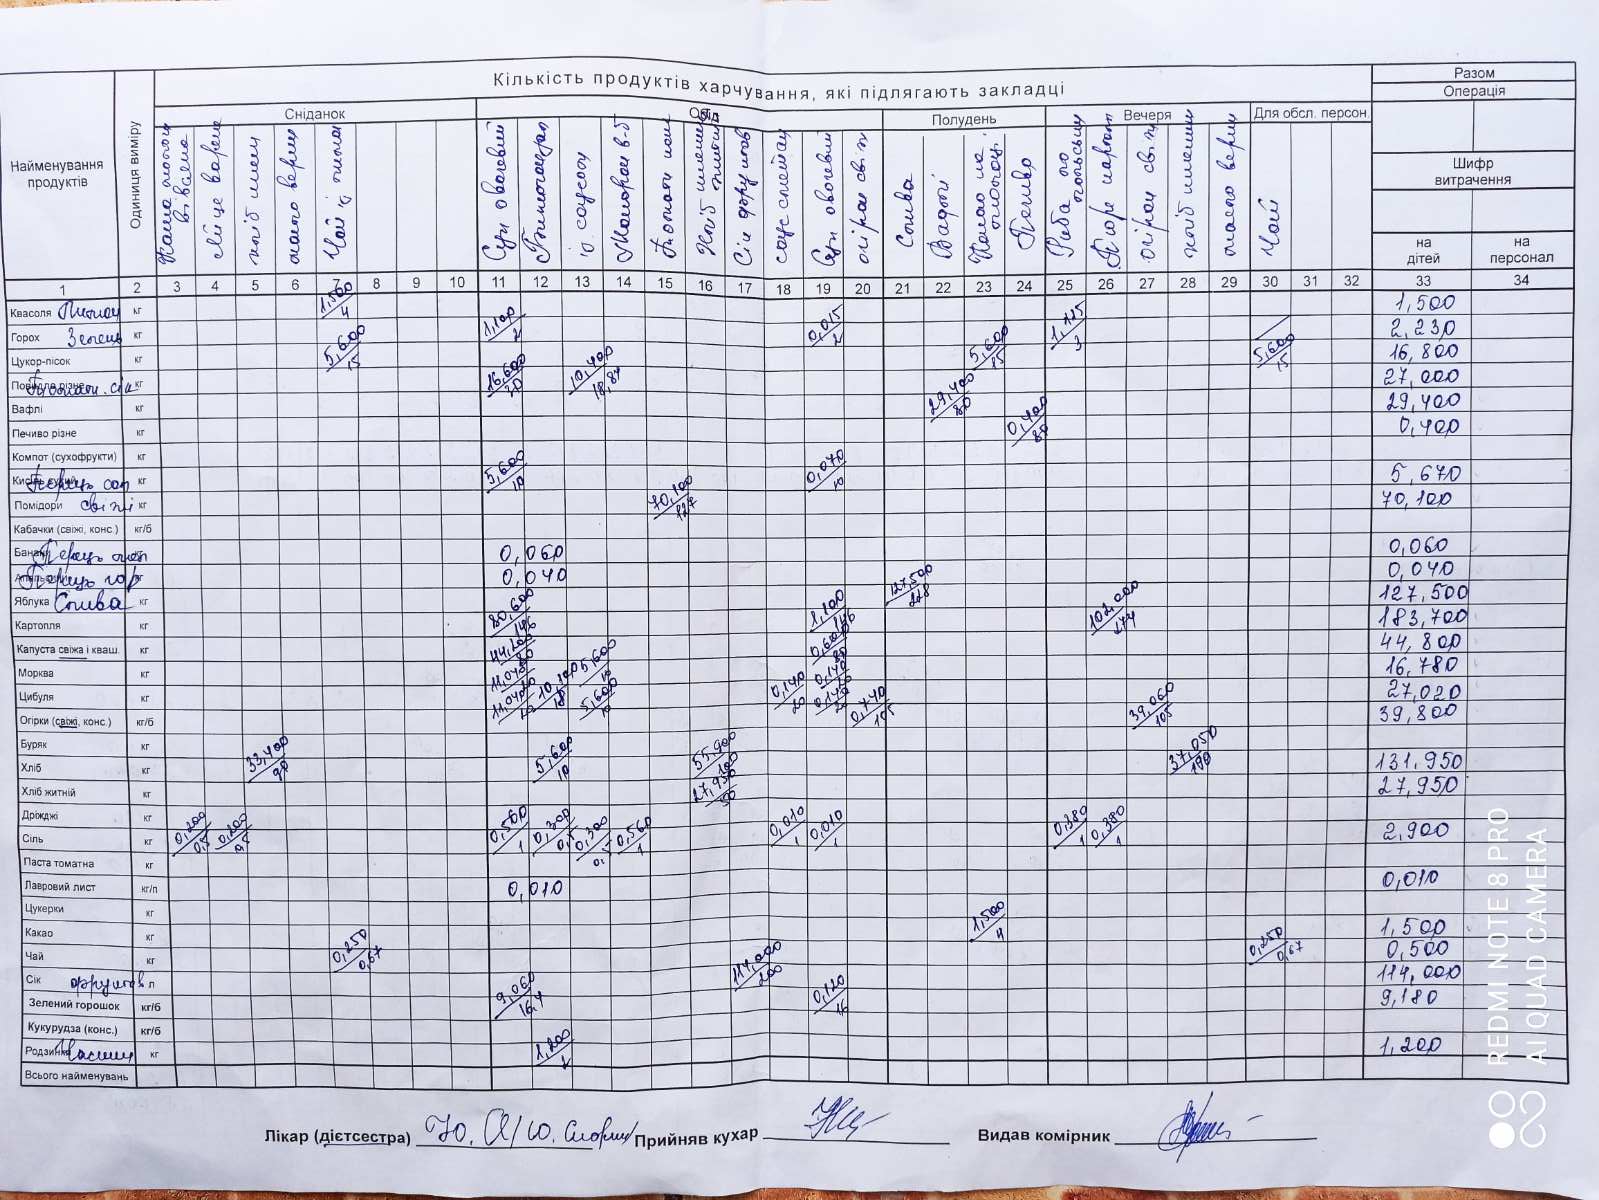 Кількість продуктів харчування, які підлягають закладці
Разом
Операція
Шифр витрачення
на дітей
на персонал
Найменування продуктів
Одиниця виміру
Сніданок
Обід
Полудень
Вечеря
Для обсл. персон.
яйце варене
Чай
Суп овочевий
Сік фрукт
огірок свіж
Слива
Вафлі
Какао на молоці
Печиво
Риба по польськи
Пюре картоп
огірок свіж
Чай
1 2 3 4 5 6 7 8 9 10 11 12 13 14 15 16 17 18 19 20 21 22 23 24 25 26 27 28 29 30 31 32 33 34
Квасоля кг 1,500/4 1,500
Горох Зелень кг 1,100/2 0,015/2 1,115/3 2,230
Цукор-пісок кг 5,600/15 5,600/15 5,600/15 16,800
Повидло різне Томатн. сік кг 16,600/30 10,400/18,87 27,000
Вафлі кг 29,400/80 29,400
Печиво різне кг 0,400/80 0,400
Компот (сухофрукти) кг
Кисіль сухий Перець сол кг 5,600/10 0,070/10 5,670
Помідори свіжі кг 70,100/127 70,100
Кабачки (свіжі, конс.) кг/б
Банани Перець мел кг 0,060 0,060
Апельсини Перець гор кг 0,040 0,040
Яблука Слива кг 127,500/228 127,500
Картопля кг 80,600/146 1,100/146 102,000/274 183,700
Капуста свіжа і кваш. кг 44,200/80 0,600/80 44,800
Морква кг 11,040/20 5,600/10 0,140/20 16,780
Цибуля кг 11,040/20 10,100/18 5,600/10 0,140/20 0,140/20 27,020
Огірки (свіжі, конс.) кг/б 0,740/105 39,060/105 39,800
Буряк кг
Хліб кг 33,400/90 5,600/10 55,900/100 37,050/100 131,950
Хліб житній кг 27,950/50 27,950
Дріжджі кг
Сіль кг 0,200/0,5 0,200/0,5 0,560/1 0,300/0,5 0,300/0,5 0,560/1 0,010/1 0,010/1 0,380/1 0,380/1 2,900
Паста томатна кг
Лавровий лист кг/п 0,010 0,010
Цукерки кг
Какао кг 1,500/4 1,500
Чай кг 0,250/0,67 0,250/0,67 0,500
Сік фруктов л 114,000/200 114,000
Зелений горошок кг/б 9,060/16,4 0,120/16 9,180
Кукурудза (конс.) кг/б
Родзинки кг 1,200/2 1,200
Всього найменувань
Лікар (дієтсестра) Прийняв кухар Видав комірник
REDMI NOTE 8 PRO
AI QUAD CAMERA